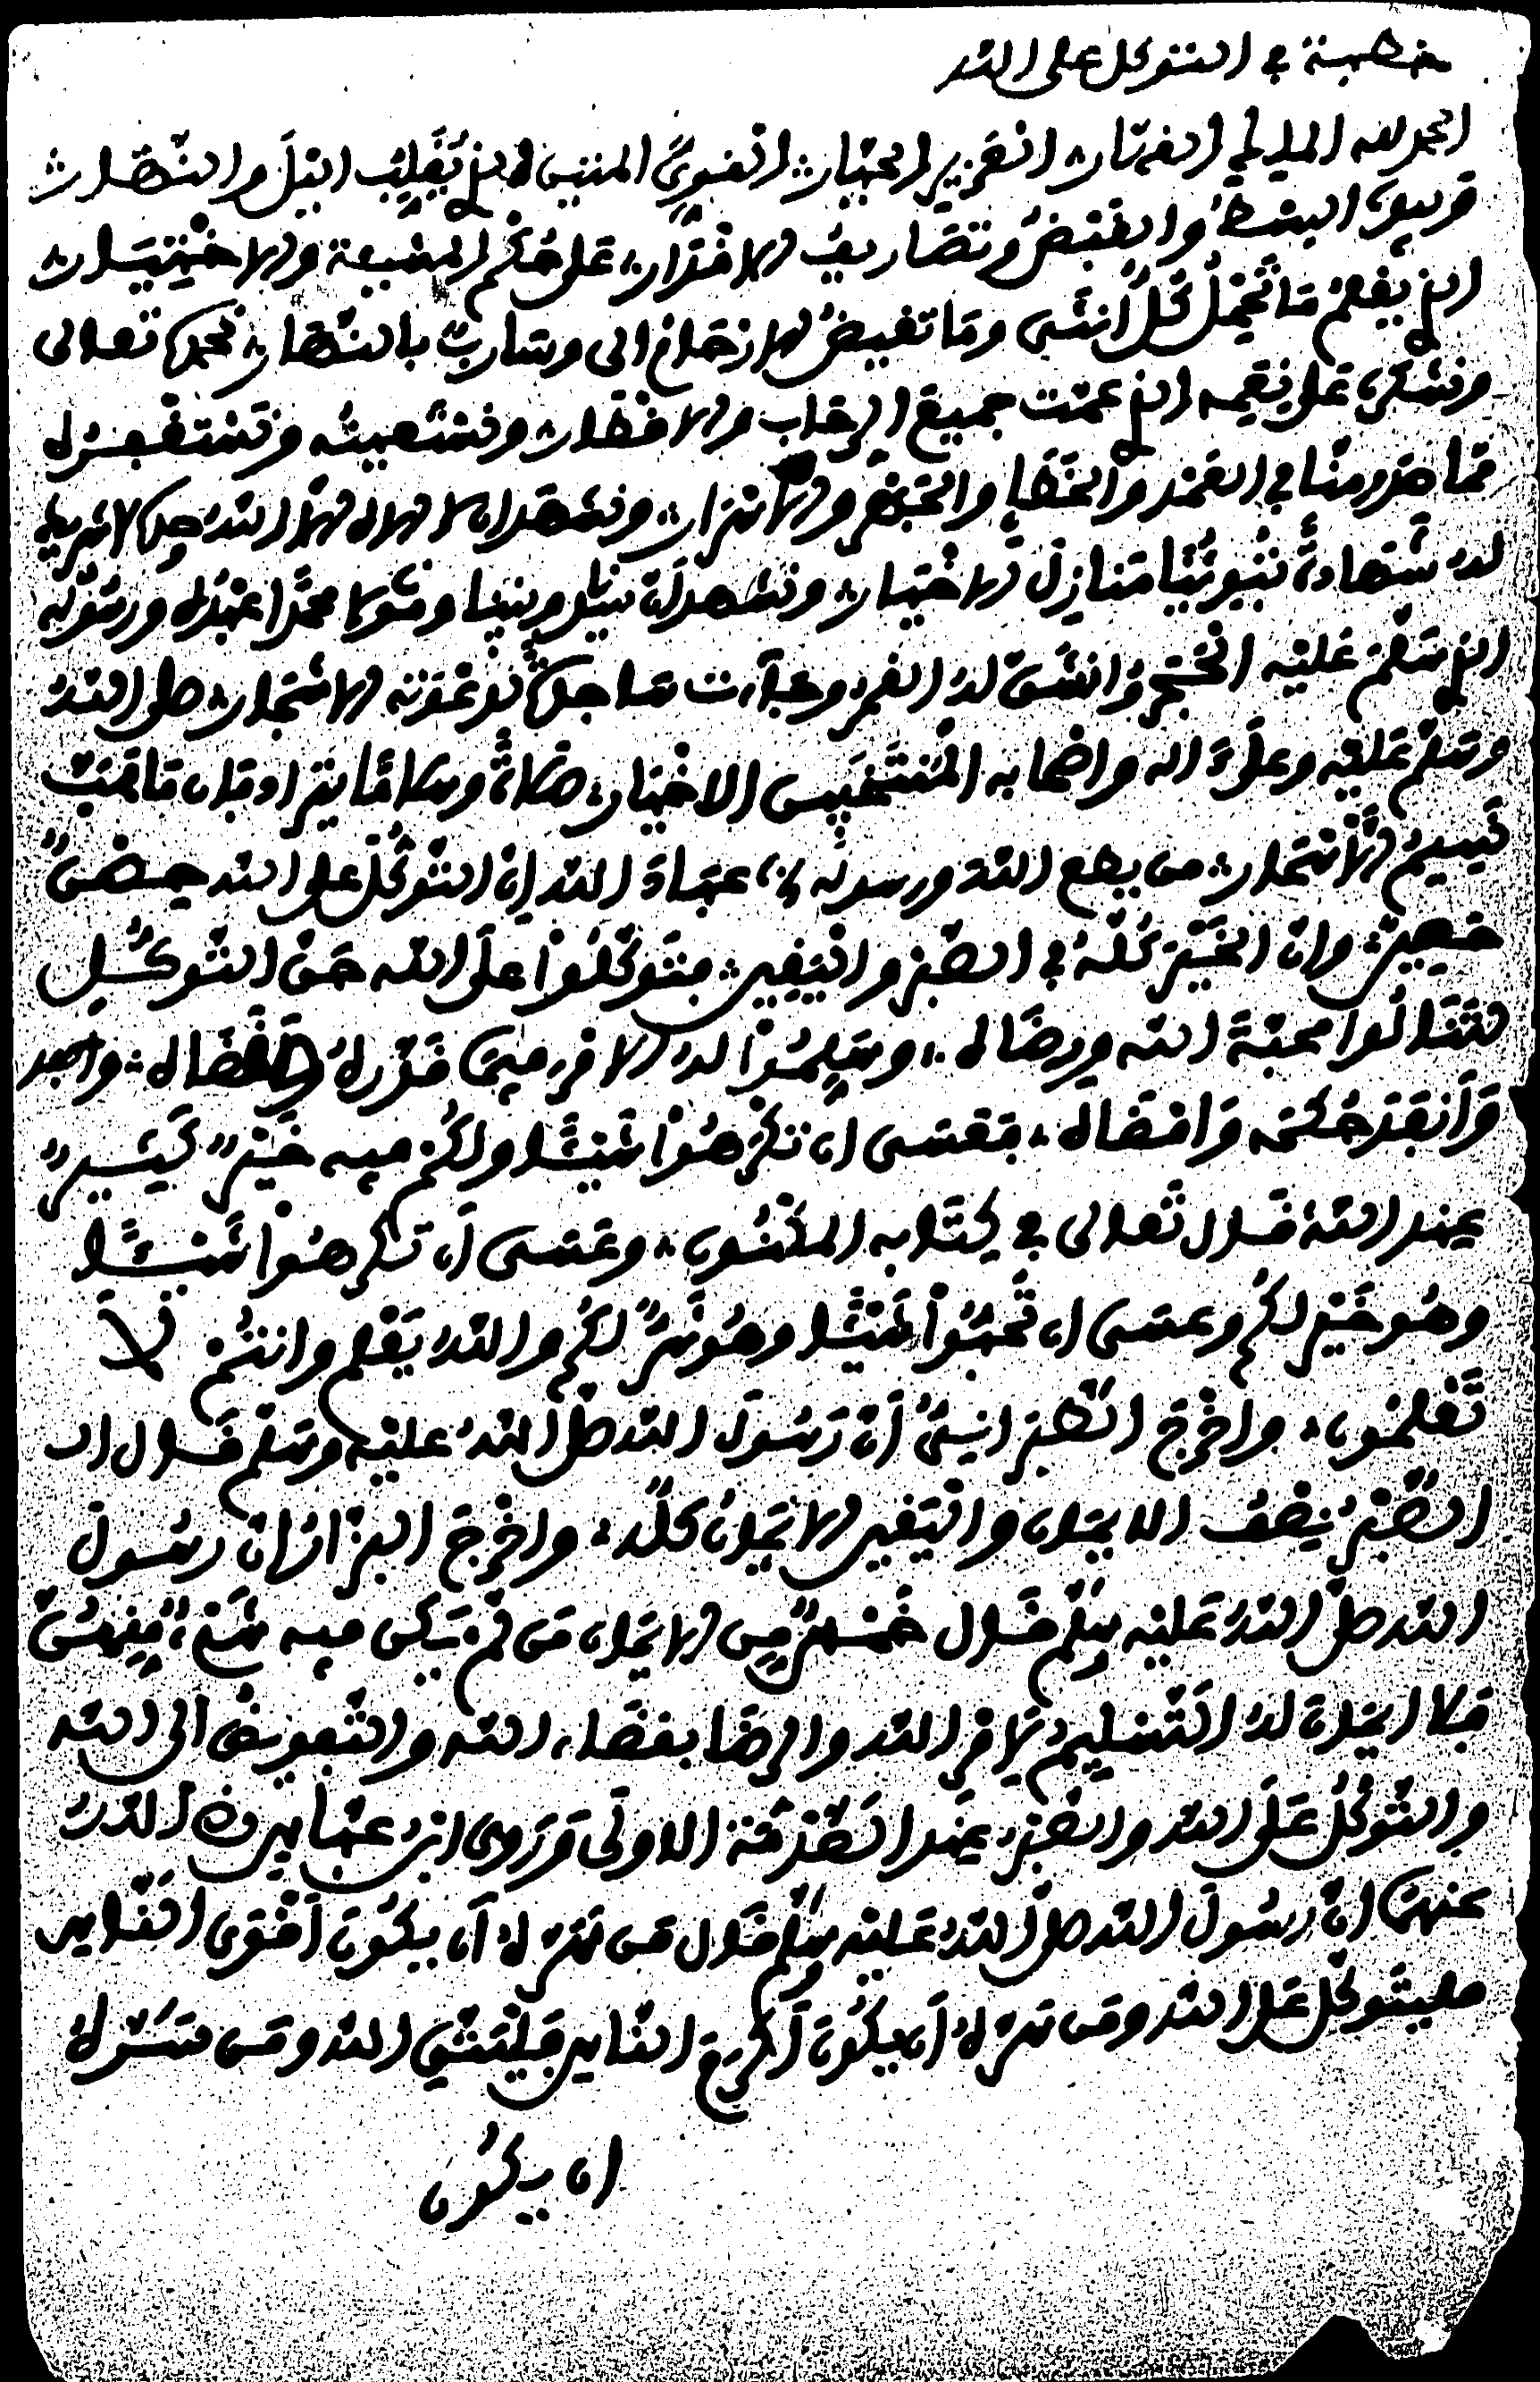 خطبة في التوكل على الله
الحمد لله الملك القهار العزيز الجبار القوي المتين الذي يقلب اليل والنهار
وبيده البسط والقبض وتصاريف الاقدار على حكم المشيئة والاختيار
الذي يعلم ما تحمل كل أنثى وما تغيض الارحام وسارب بالنهار نحمده تعالى
ونشكره على نعمه الذي عمت جميع الرحاب والاقطار ونستعينه ونستغفره
مما صدر منا في العمد والخطإ والجهر والاسرار ونشهد ان لا إلاه إلا الله وحده لا شريك
له شهادة تبوئنا منازل الاخيار ونشهد أن سيدنا ونبينا ومولانا محمدا عبده ورسوله
الذي سلم عليه الحجر وانشق له القمر وجاءت ساجدة لدعوته الاشجار صلى الله
وسلم عليه وعلى ءاله واصحابه المنتخبين الاخيار صلاة وسلاما يترادفان ما هبت
نسيم الاسحار من يطع الله ورسوله عباد الله إن التوكل على الله حصن
حصين وان الخير كله في الصبر واليقين فتوكلوا على الله حق التوكل
لتنالوا محبة الله ورضاه وسلموا له الامر فيما قدره وقضاه
وأنفذ حكمه وامضاه فعسى ان تكرهوا شيئا ولكم فيه خير كثير
عند الله قال تعالى في كتابه المكنون وعسى أن تكرهوا شيئا
وهو خير لكم وعسى ان تحبوا شيئا وهو شر لكم والله يعلم وانتم لا
تعلمون واخرج الطبراني أن رسول الله صلى الله عليه وسلم قال ان
الصبر نصف الايمان واليقين الايمان كله واخرج البزار ان رسول
الله صلى الله عليه وسلم قال خمس من الايمان من لم يكن فيه شيء منهن
فلا ايمان له التسليم لامر الله والرضا بقضاء الله والتفويض الى الله
والتوكل على الله والصبر عند الصدمة الاولى وروى ابن عباس رضي الله
عنهما ان رسول الله صلى الله عليه وسلم قال من سره أن يكون أقوى الناس
فليتوكل على الله ومن سره أن يكون أكرم الناس فليتق الله ومن سره
ان يكون